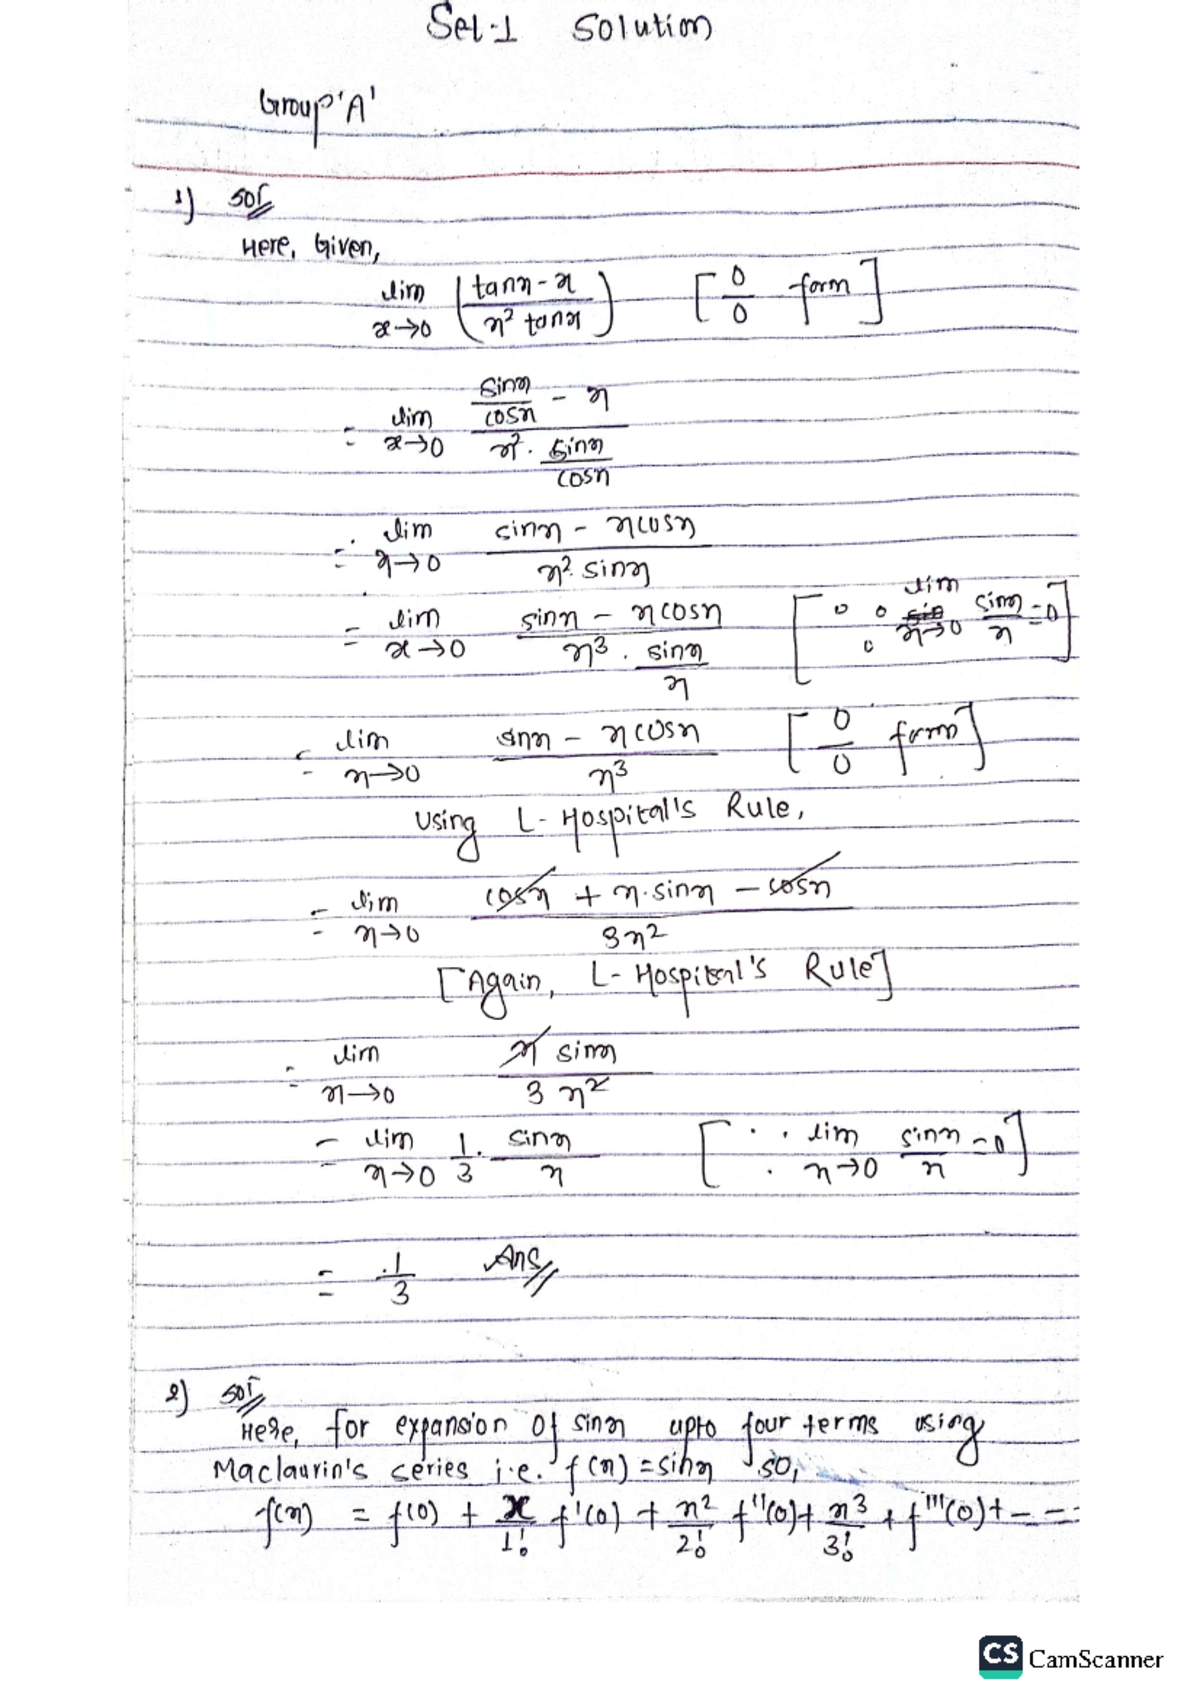 Set-1 Solution
Group 'A'
1) Solⁿ
Here, Given,
lim x→0 (tanx - x / x² tanx) [0/0 form]
= lim x→0 (sinx/cosx - x) / (x² · sinx/cosx)
= lim x→0 (sinx - xcosx) / (x² · sinx)
= lim x→0 (sinx - xcosx) / (x³ · sinx/x) [∵ lim x→0 sinx/x = 0]
= lim x→0 (sinx - xcosx) / x³ [0/0 form]
Using L-Hospital's Rule,
= lim x→0 (cosx + x·sinx - cosx) / 3x²
[Again, L-Hospital's Rule]
= lim x→0 x sinx / 3x²
= lim x→0 1/3 · sinx/x [∵ lim x→0 sinx/x = 0]
= 1/3 Ans
2) Solⁿ
Here, for expansion of sinx upto four terms using
Maclaurin's series i.e. f(x) = sinx so,
f(x) = f(0) + x/1! f'(0) + x²/2! f''(0) + x³/3! + f'''(0) + - - -
CS CamScanner